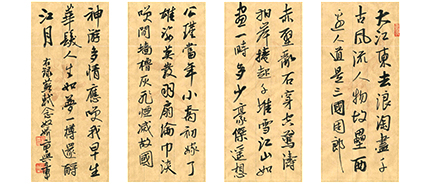 大江東去浪淘盡千
古風流人物故壘西
邊人道是三國周郎
赤壁亂石穿空驚濤
拍岸捲起千堆雪江山如
畫一時多少豪傑遙想
公瑾當年小喬初嫁了
雄姿英發羽扇綸巾談
笑間檣櫓灰飛煙滅故國
神游多情應笑我早生
華髮人生如夢一樽還酹
江月
右錄蘇軾念奴嬌